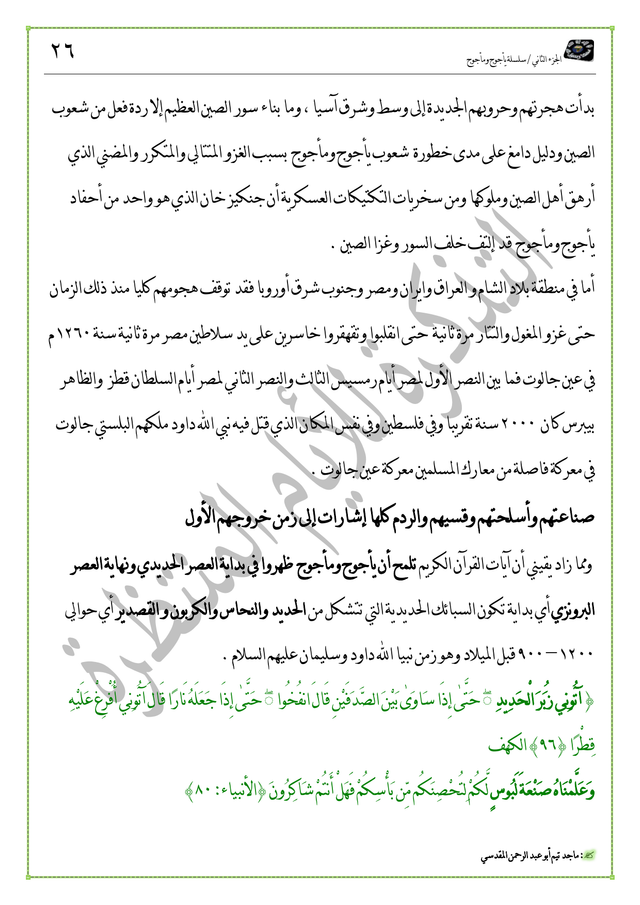 ٢٦
الجزء الثاني / سلسلة يأجوج ومأجوج
بدأت هجرتهم وحروبهم الجديدة إلى وسط وشرق آسيا ، وما بناء سور الصين العظيم إلا ردة فعل من شعوب
الصين ودليل دامغ على مدى خطورة شعوب يأجوج ومأجوج بسبب الغزو المتتالي والمتكرر والمضني الذي
أرهق أهل الصين وملوكها ومن سخريات التكتيكات العسكرية أن جنكيز خان الذي هو واحد من أحفاد
يأجوج ومأجوج قد إلتف خلف السور وغزا الصين .
أما في منطقة بلاد الشام والعراق وإيران ومصر وجنوب شرق أوروبا فقد توقف هجومهم كليا منذ ذلك الزمان
حتى غزو المغول والتتار مرة ثانية حتى انقلبوا وتقهقروا خاسرين على يد سلاطين مصر مرة ثانية سنة ١٢٦٠ م
في عين جالوت فما بين النصر الأول لمصر أيام رمسيس الثالث والنصر الثاني لمصر أيام السلطان قطز والظاهر
بيبرس كان ٢٠٠٠ سنة تقريبا وفي فلسطين وفي نفس المكان الذي قتل فيه نبي الله داود ملكهم البلستي جالوت
في معركة فاصلة من معارك المسلمين معركة عين جالوت .
صناعتهم وأسلحتهم وقسيهم والردم كلها إشارات إلى زمن خروجهم الأول
ومما زاد يقيني أن آيات القرآن الكريم تلمح أن يأجوج ومأجوج ظهروا في بداية العصر الحديدي ونهاية العصر
البرونزي أي بداية تكون السبائك الحديدية التي تتشكل من الحديد والنحاس والكربون والقصدير أي حوالي
١٢٠٠ – ٩٠٠ قبل الميلاد وهو زمن نبيا الله داود وسليمان عليهم السلام .
﴿ آتُونِي زُبَرَ الْحَدِيدِ ۖ حَتَّىٰ إِذَا سَاوَىٰ بَيْنَ الصَّدَفَيْنِ قَالَ انفُخُوا ۖ حَتَّىٰ إِذَا جَعَلَهُ نَارًا قَالَ آتُونِي أُفْرِغْ عَلَيْهِ
قِطْرًا ﴿٩٦﴾ الكهف
وَعَلَّمْنَاهُ صَنْعَةَ لَبُوسٍ لَّكُمْ لِتُحْصِنَكُم مِّن بَأْسِكُمْ فَهَلْ أَنتُمْ شَاكِرُونَ ﴿الأنبياء: ٨٠﴾
التذكرة للأيام المنتظرة
: ماجد تيم أبو عبد الرحمن المقدسي